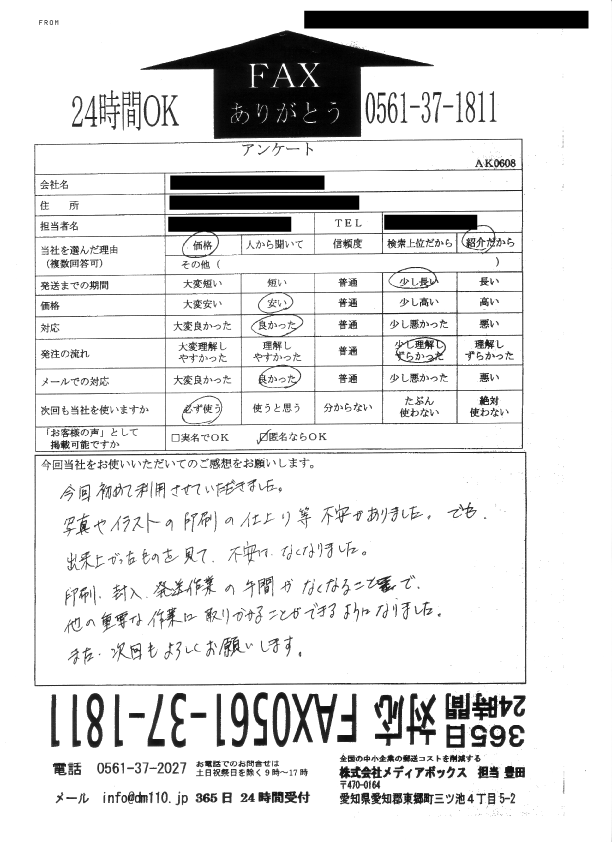 FROM
FAX
24時間OK ありがとう 0561-37-1811
アンケート
AK0608
会社名
住 所
担当者名 TEL
当社を選んだ理由 価格 人から聞いて 信頼度 検索上位だから 紹介だから
(複数回答可) その他( )
発送までの期間 大変短い 短い 普通 少し長い 長い
価格 大変安い 安い 普通 少し高い 高い
対応 大変良かった 良かった 普通 少し悪かった 悪い
発注の流れ 大変理解しやすかった 理解しやすかった 普通 少し理解しずらかった 理解しずらかった
メールでの対応 大変良かった 良かった 普通 少し悪かった 悪い
次回も当社を使いますか 必ず使う 使うと思う 分からない たぶん使わない 絶対使わない
「お客様の声」として
掲載可能ですか □実名でOK ☑匿名ならOK
今回当社をお使いいただいてのご感想をお願いします。
今回初めて利用させていただきました。
写真やイラストの印刷の仕上り等不安がありました。でも、
出来上がったものを見て、不安はなくなりました。
印刷、封入、発送作業の手間がなくなることで、
他の重要な作業に取りかかることができるようになりました。
また、次回もよろしくお願いします。
365日
24時間 対応 FAX0561-37-1811
電話 0561-37-2027 お電話でのお問合せは
土日祝祭日を除く9時～17時
メール info@dm110.jp 365日 24時間受付
全国の中小企業の郵送コストを削減する
株式会社メディアボックス 担当 豊田
〒470-0164
愛知県愛知郡東郷町三ツ池4丁目5-2